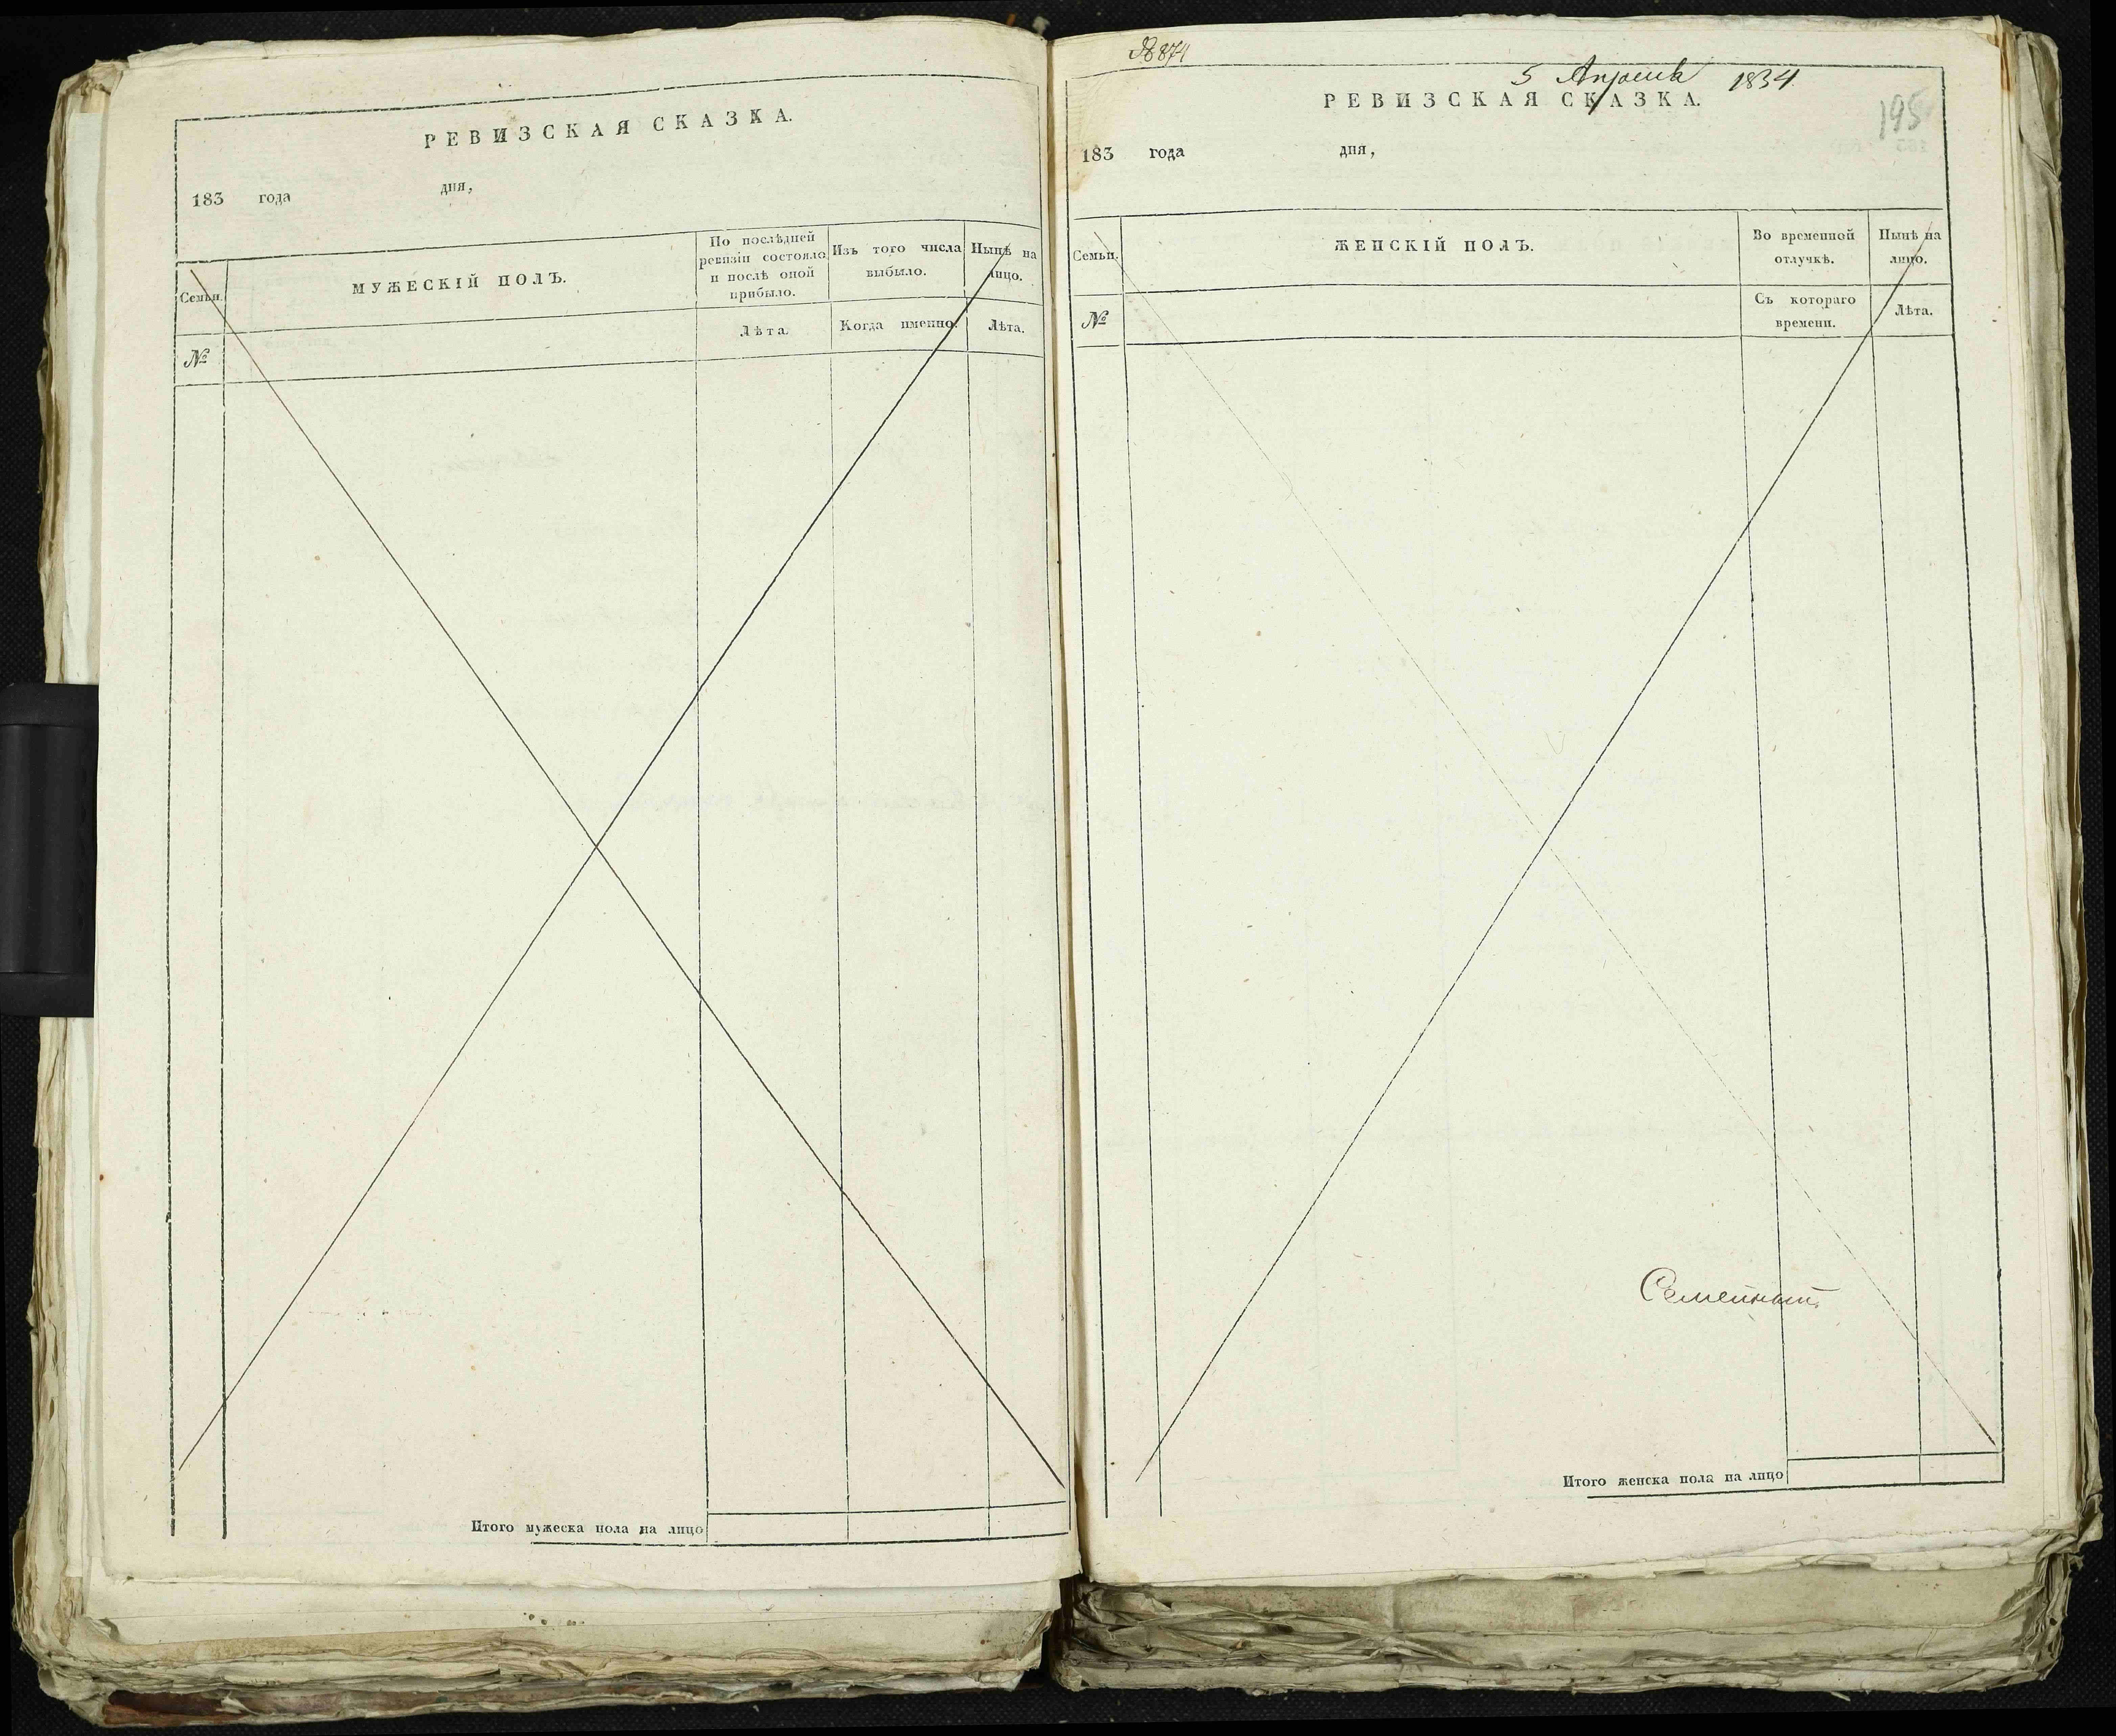 РЕВИЗСКАЯ СКАЗКА.
183 года дня,
Семьи.
МУЖЕСКІЙ ПОЛЪ.
По послѣдней ревизіи состояло и послѣ оной прибыло.
Изъ того числа выбыло.
Нынѣ на лицо.
№
Лѣта.
Когда именно.
Лѣта.
Итого мужеска пола на лицо
№ 874
5 Апреля 1834.
РЕВИЗСКАЯ СКАЗКА.
195
183 года дня,
Семьи.
ЖЕНСКІЙ ПОЛЪ.
Во временной отлучкѣ.
Нынѣ на лицо.
№
Съ котораго времени.
Лѣта.
Итого женска пола на лицо